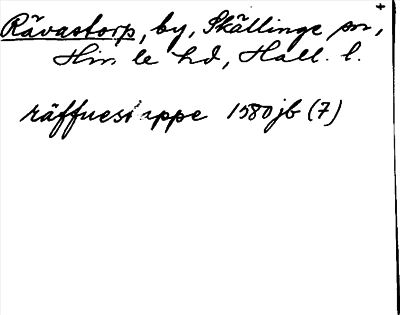 Rävastorp, by, Skällinge sn, +
Himle hd, Hall. l.
räffuesi appe 1580 jb (7)